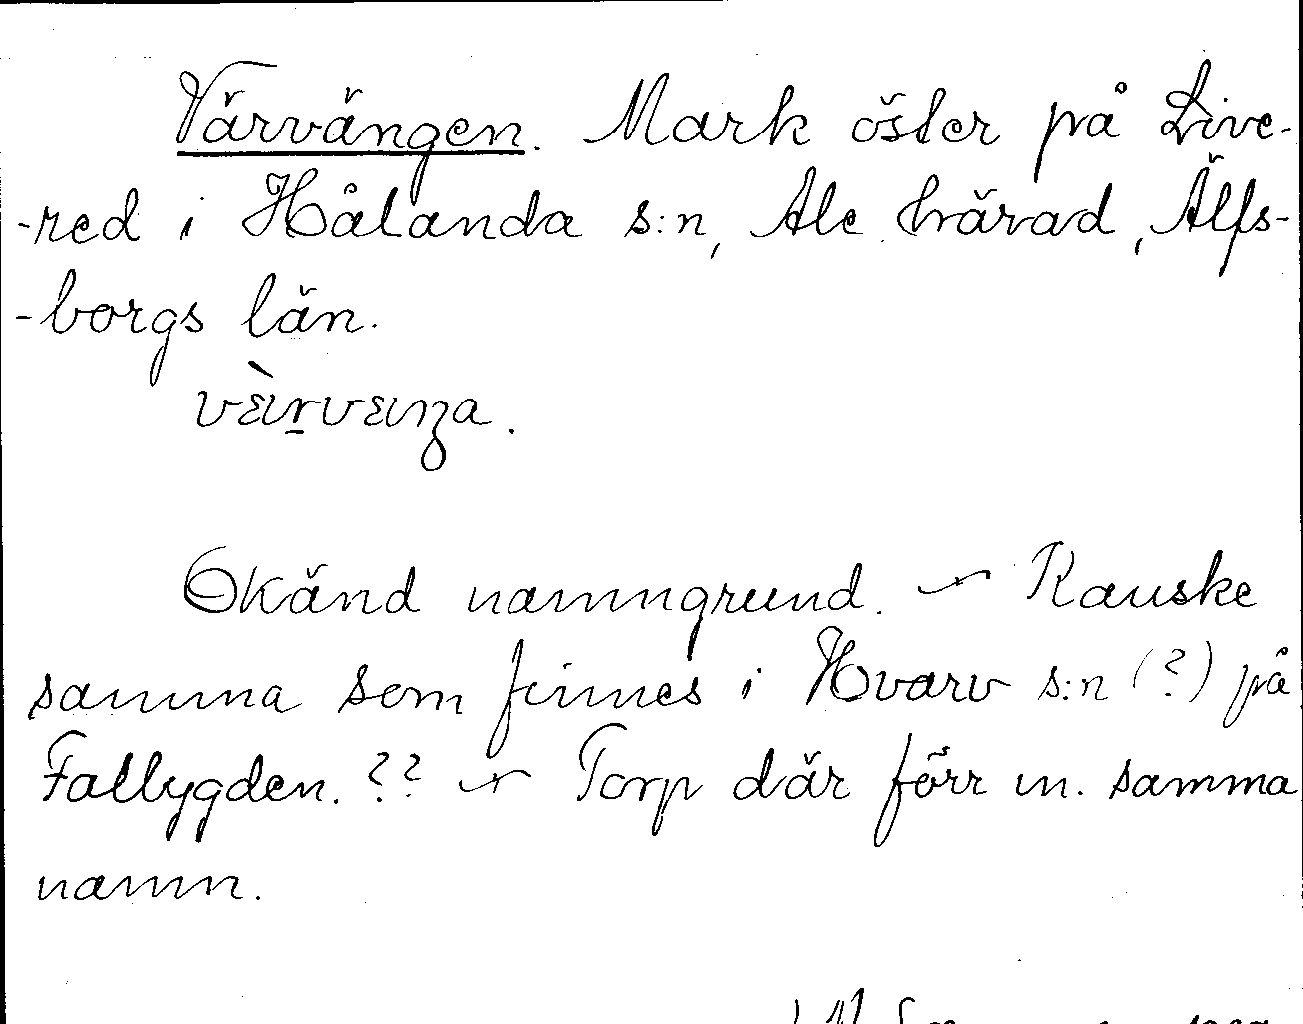 Värvängen. Mark öster på Live-
-red i Hålanda s:n, Ale härad, Älfs-
-borgs län.
Okänd namngrund. – Kanske
samma som finnes i Hvarv s:n (?) på
Falbygden. ?? – Torp där förr m. samma
namn.